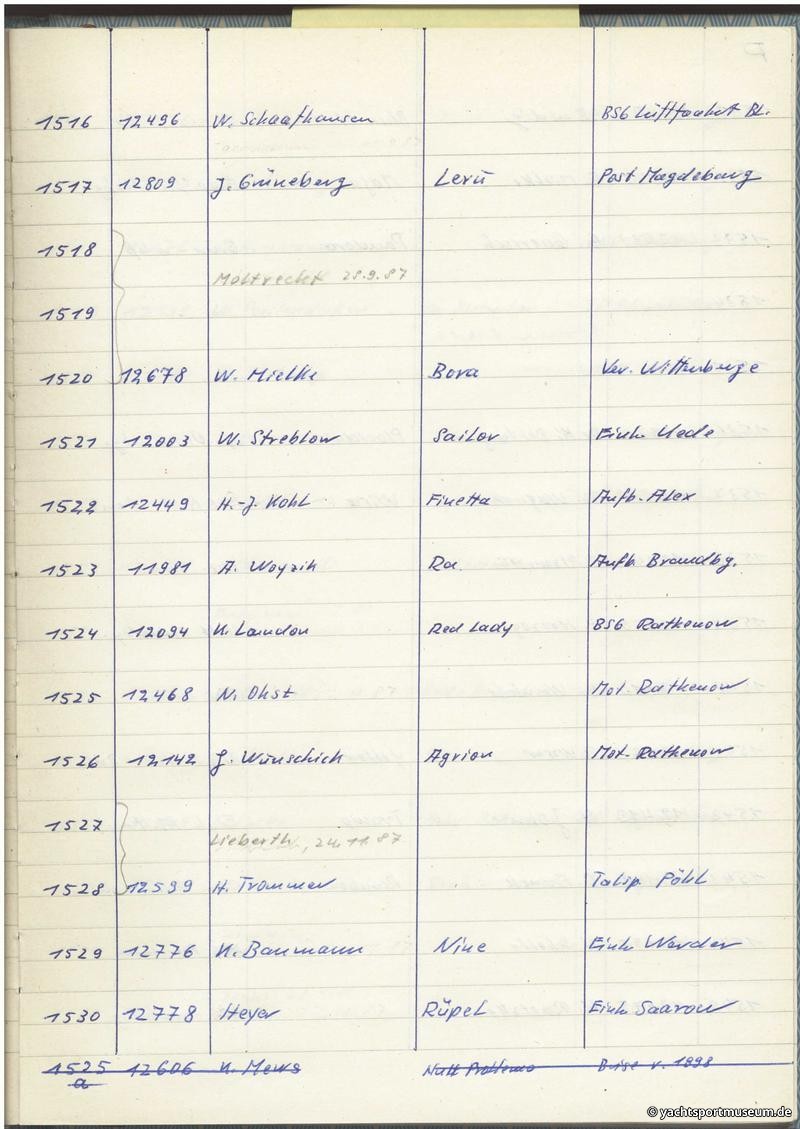 1516 12496 W. Schaafhausen BSG Luftfahrt Bl.
1517 12809 J. Grüneberg Lerü Post Magdeburg
1518
Moltrecht 28.9.87
1519
1520 12678 W. Mielke Bora Ver. Wittenberge
1521 12003 W. Streblow Sailor Einh. Uede
1522 12449 H.-J. Kohl Finetta Aufb. Alex
1523 11981 A. Woyzik Ra Aufb. Brandbg.
1524 12094 K. Landon Red Lady BSG Rathenow
1525 12468 N. Ohst Mot. Rathenow
1526 12142 J. Wünschick Agrion Mot. Rathenow
1527
Lieberth, 24.11.87
1528 12539 H. Trommer Talsp. Pöhl
1529 12776 K. Baumann Nine Einh. Werder
1530 12778 Heyer Rüpel Einh. Saarow
1525 12606 K. Mews Null Problemo Brise v. 1898
a
© yachtsportmuseum.de